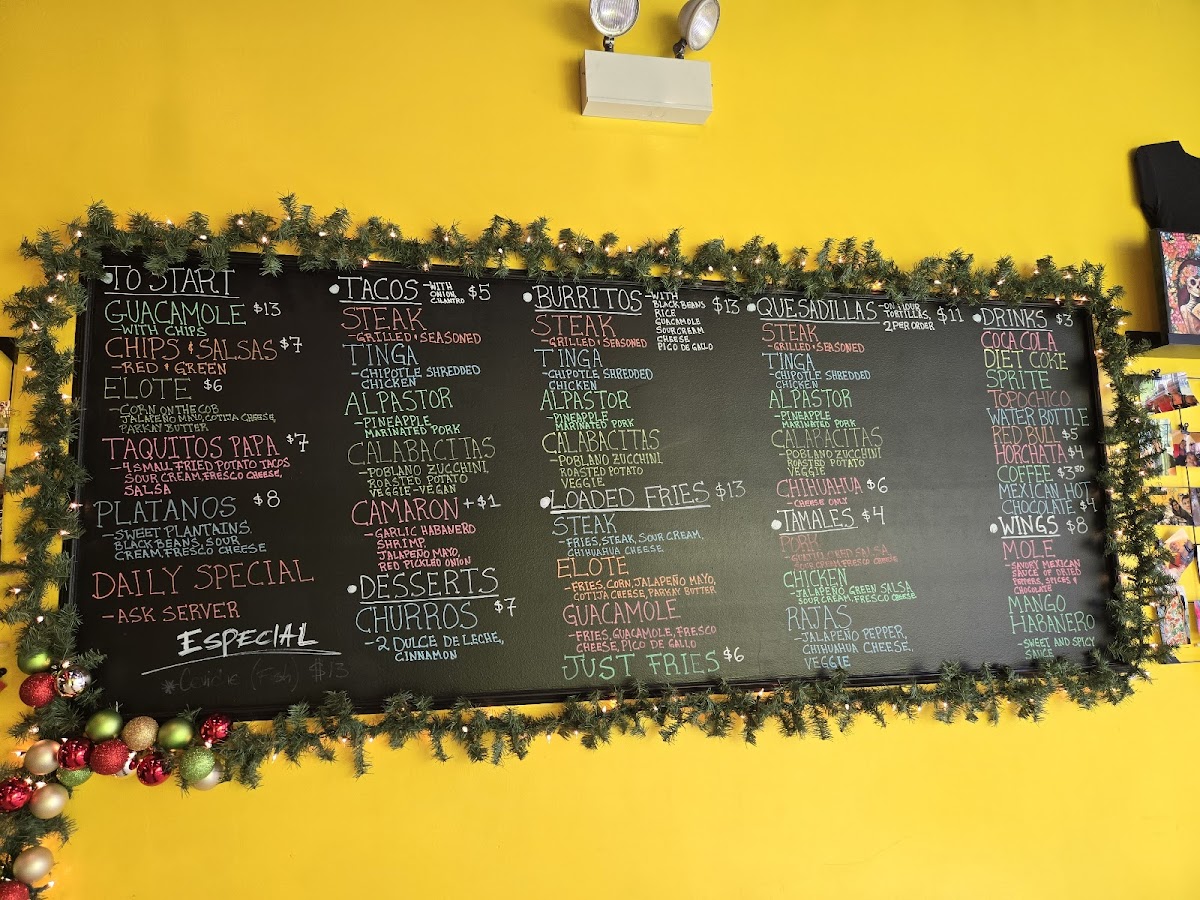 TO START
GUACAMOLE $13
-WITH CHIPS
CHIPS & SALSAS $7
-RED & GREEN
ELOTE $6
-CORN ON THE COB
JALAPEÑO MAYO, COTIJA CHEESE,
PARKAY BUTTER
TAQUITOS PAPA $7
-4 SMALL FRIED POTATO TACOS
SOUR CREAM, FRESCO CHEESE,
SALSA
PLATANOS $8
-SWEET PLANTAINS.
BLACK BEANS, SOUR
CREAM, FRESCO CHEESE
DAILY SPECIAL
-ASK SERVER
ESPECIAL
*Ceviche (Fish) $13
TACOS -WITH ONION CILANTRO $5
STEAK
-GRILLED & SEASONED
TINGA
-CHIPOTLE SHREDDED
CHICKEN
AL PASTOR
-PINEAPPLE
MARINATED PORK
CALABACITAS
-POBLANO ZUCCHINI
ROASTED POTATO
VEGGIE-VEGAN
CAMARON +$1
-GARLIC HABANERO
SHRIMP,
JALAPEÑO MAYO,
RED PICKLED ONION
DESSERTS
CHURROS $7
-2 DULCE DE LECHE,
CINNAMON
BURRITOS $13
-WITH
BLACK BEANS
RICE
GUACAMOLE
SOUR CREAM
CHEESE
PICO DE GALLO
STEAK
-GRILLED & SEASONED
TINGA
-CHIPOTLE SHREDDED
CHICKEN
AL PASTOR
-PINEAPPLE
MARINATED PORK
CALABACITAS
-POBLANO ZUCCHINI
ROASTED POTATO
VEGGIE
LOADED FRIES $13
STEAK
-FRIES, STEAK, SOUR CREAM,
CHIHUAHUA CHEESE
ELOTE
-FRIES, CORN, JALAPEÑO MAYO,
COTIJA CHEESE, PARKAY BUTTER
GUACAMOLE
-FRIES, GUACAMOLE, FRESCO
CHEESE, PICO DE GALLO
JUST FRIES $6
QUESADILLAS $11
-ON FLOUR
TORTILLAS,
2 PER ORDER
STEAK
-GRILLED & SEASONED
TINGA
-CHIPOTLE SHREDDED
CHICKEN
AL PASTOR
-PINEAPPLE
MARINATED PORK
CALABACITAS
-POBLANO ZUCCHINI
ROASTED POTATO
VEGGIE
CHIHUAHUA $6
-CHEESE ONLY
TAMALES $4
PORK
RED SALSA
SOUR CREAM, FRESCO CHEESE
CHICKEN
-JALAPEÑO GREEN SALSA
SOUR CREAM, FRESCO CHEESE
RAJAS
-JALAPEÑO PEPPER,
CHIHUAHUA CHEESE.
VEGGIE
DRINKS $3
COCA COLA
DIET COKE
SPRITE
TOPO CHICO
WATER BOTTLE
RED BULL $5
HORCHATA $4
COFFEE $3.50
MEXICAN HOT
CHOCOLATE $4
WINGS $8
MOLE
-SAVORY MEXICAN
SAUCE OF DRIED
PEPPERS, SPICES &
CHOCOLATE
MANGO
HABANERO
-SWEET AND SPICY
SAUCE